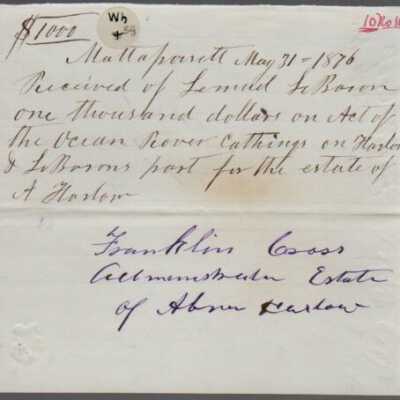 $1000
Wh
Mattapoisett May 31 - 1876
Received of Lemuel LeBaron
one thousand dollars on Act of
the Ocean Rover Cathings on Harlow
& LeBarons part for the estate of
A Harlow
Franklin Cross
Administrator Estate
of Abner Harlow